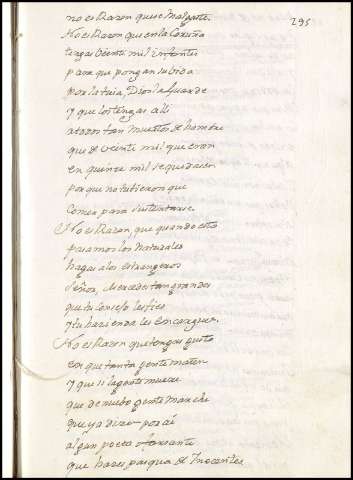 295
no es Razon que se malgaste.
No es Razon que en la Coruña
tengas Veinte mil Infantes
para que pongan su vida
por la tuia, Dios la Guarde
y que los tengas alli
a todos tan muertos de hambre
que de veinte mil que eran
en quince mil se quedasen
porque no tubieron que
Comer para sustentarse.
No es Razon, que quando esta
los Naturales
hagas a los estrangeros
Señor, Mercedes tan grandes
que tu Consejo les fies
y tu hacienda les Encargues.
No es Razon que tengas gusto
en que tanta gente maten
y que si la gente muere
que de nuebo gente marche
que ya dizen por aí
algun poeta
que haces pasqua de Inocentes